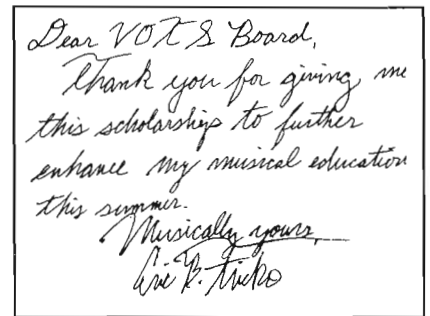 Dear VOTS Board,
Thank you for giving me
this scholarship to further
enhance my musical education
this summer.
Musically yours,
Eric B.